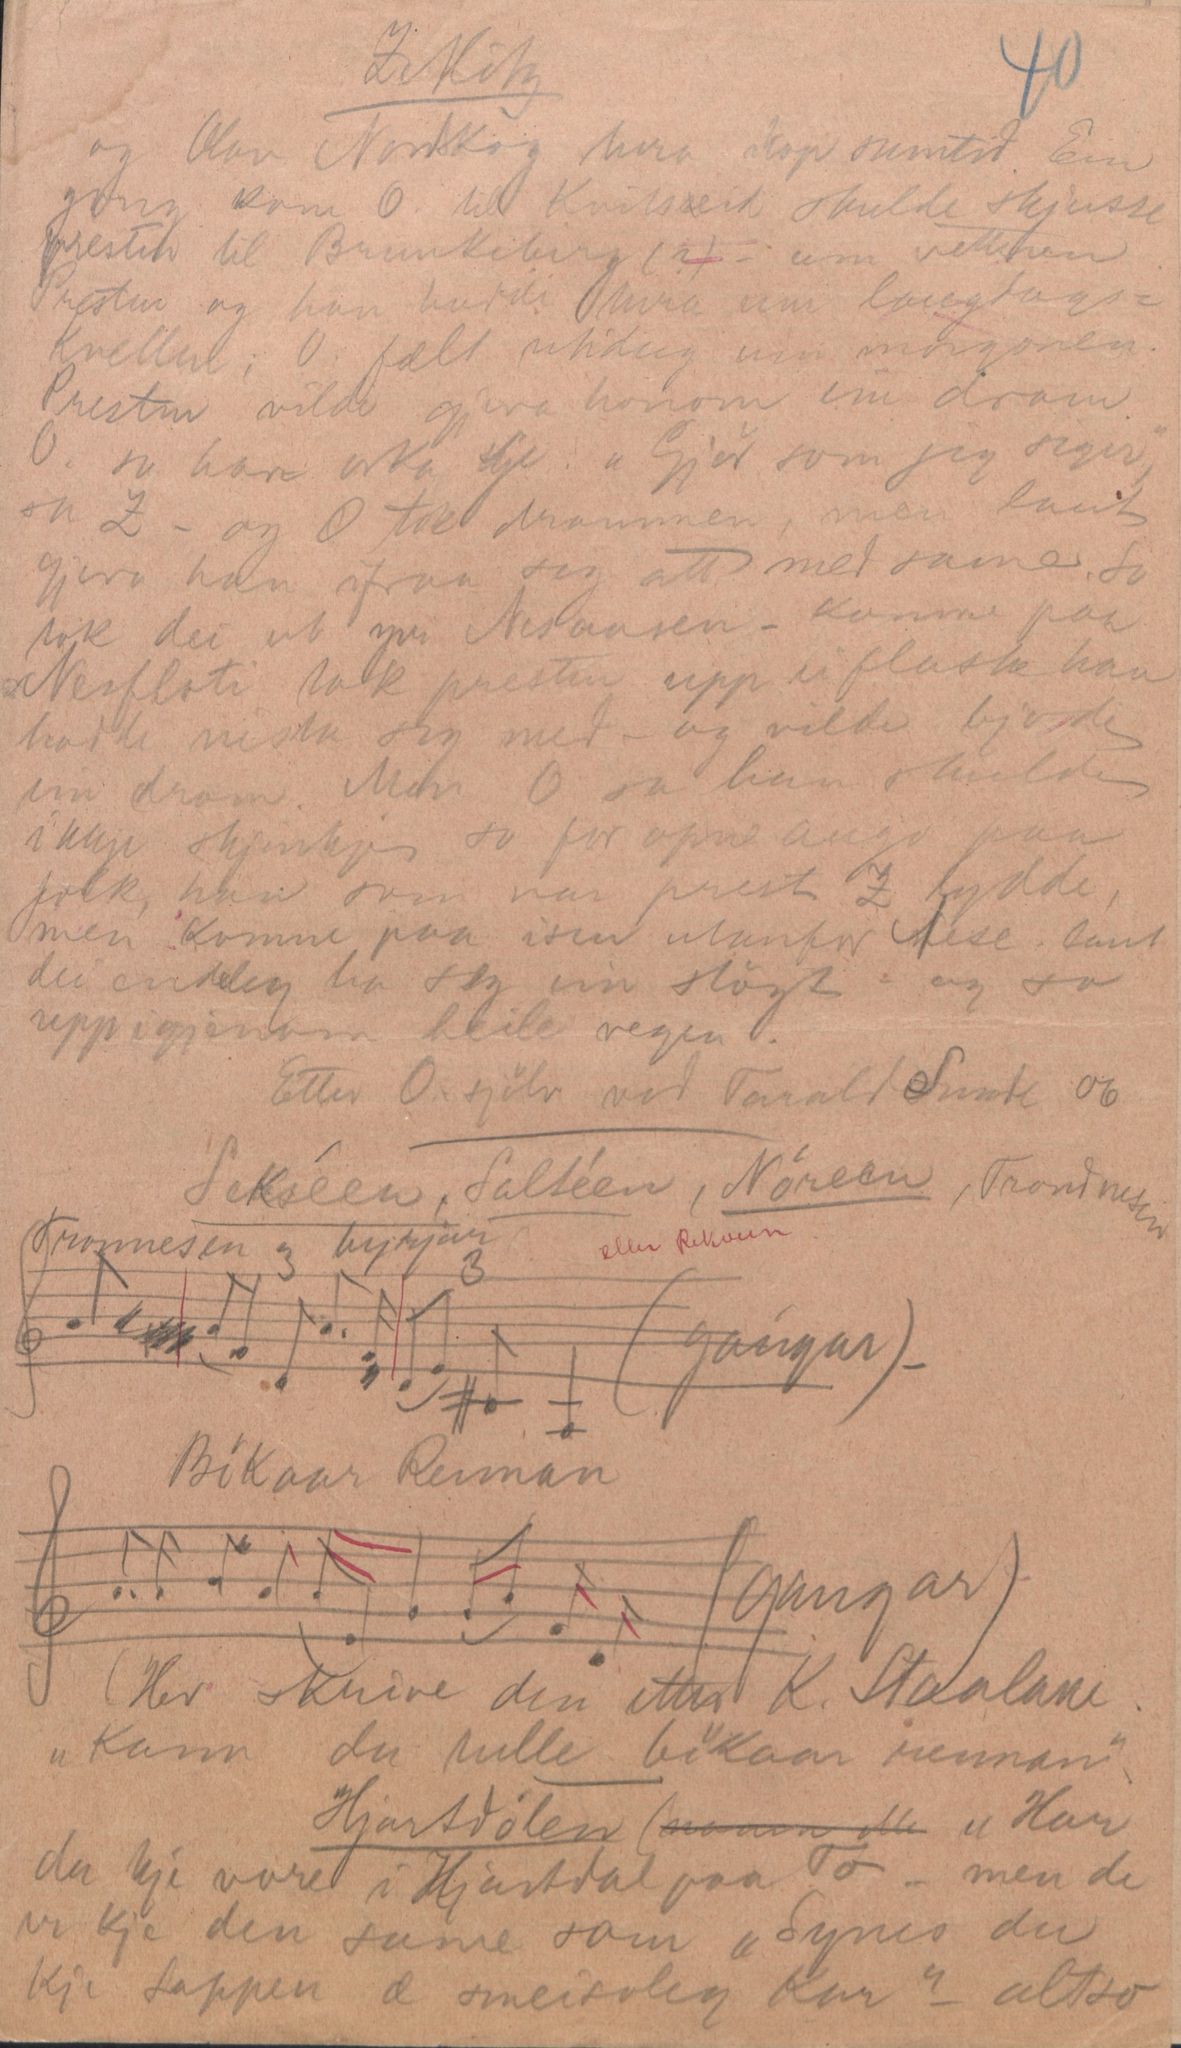 40
og Olav Nordskog hera ihop sumtid. Ein
gong kom O. til Kvitseid skulde skjusse
presten til Brunkeberg (?) - um vetteren
Presten og han hadde um laugdags=
kvellen; O. fælt utidug um morgonen.
Presten vilde gjeva honom ein dram
O. sa han orka kje. „Gjør som jeg siger,"
sa Z - og O tok drammen, men laut
gjeva han ifraa seg att med same. So
tok dei ut yvi Nesaasen - komne paa
Nesfloti tok presten upp ei flaska han
hadde nista seg med - og vilde bjode
ein dram. Men O sa han skulde
ikkje skjenkje so for opne augo paa
folk, han som var prest Z lydde,
men komne paa isen utanfor Nese laut
dei endeleg ta seg ein støyt - og so
uppigjenom heile vegen.
Etter O. sjølv ved Tarald Sunde 06
Sekséen, Saltéen, Nóreen, Trondnesen
Tromnesen og byrjar
eller Rekveen
3 3 (gangar) -
Bikaar Renman
(gangar)
(Her skrive den etter K. Staalane.
„Kann du tulle bikaar renman"
Hjartdølen ( „Har
du kje vore i Hjartdal paa To - men de
er kje den same som „Synes du
kje Loppen æ smeisoleg Kar" - altso